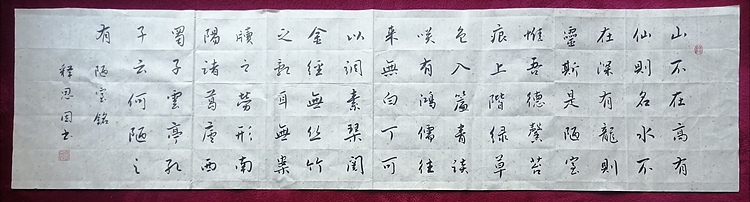 山不在高有
仙則名水不
在深有龍則
靈斯是陋室
惟吾德馨苔
痕上階緑草
色入簾青談
咲有鴻儒往
来無白丁可
以調素琴閱
金經無丝竹
之亂耳無案
牘之勞形南
陽諸葛廬西
蜀子雲亭孔
子云何陋之
有 陋室銘